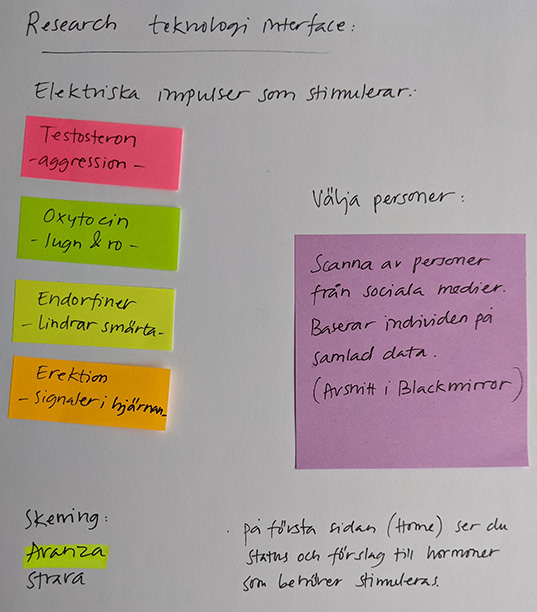 Research teknologi interface:
Elektriska impulser som stimulerar:
Testosteron
- aggression -
Oxytocin
- lugn & ro -
Endorfiner
- lindrar smärta -
Erektion
- signaler i hjärnan -
Välja personer:
Scanna av personer
från sociala medier.
Baserar individen på
samlad data.
(Avsnitt i Blackmirror)
Skerning:
Avanza
strava
· på första sidan (Home) ser du
status och förslag till hormoner
som behöver stimuleras.